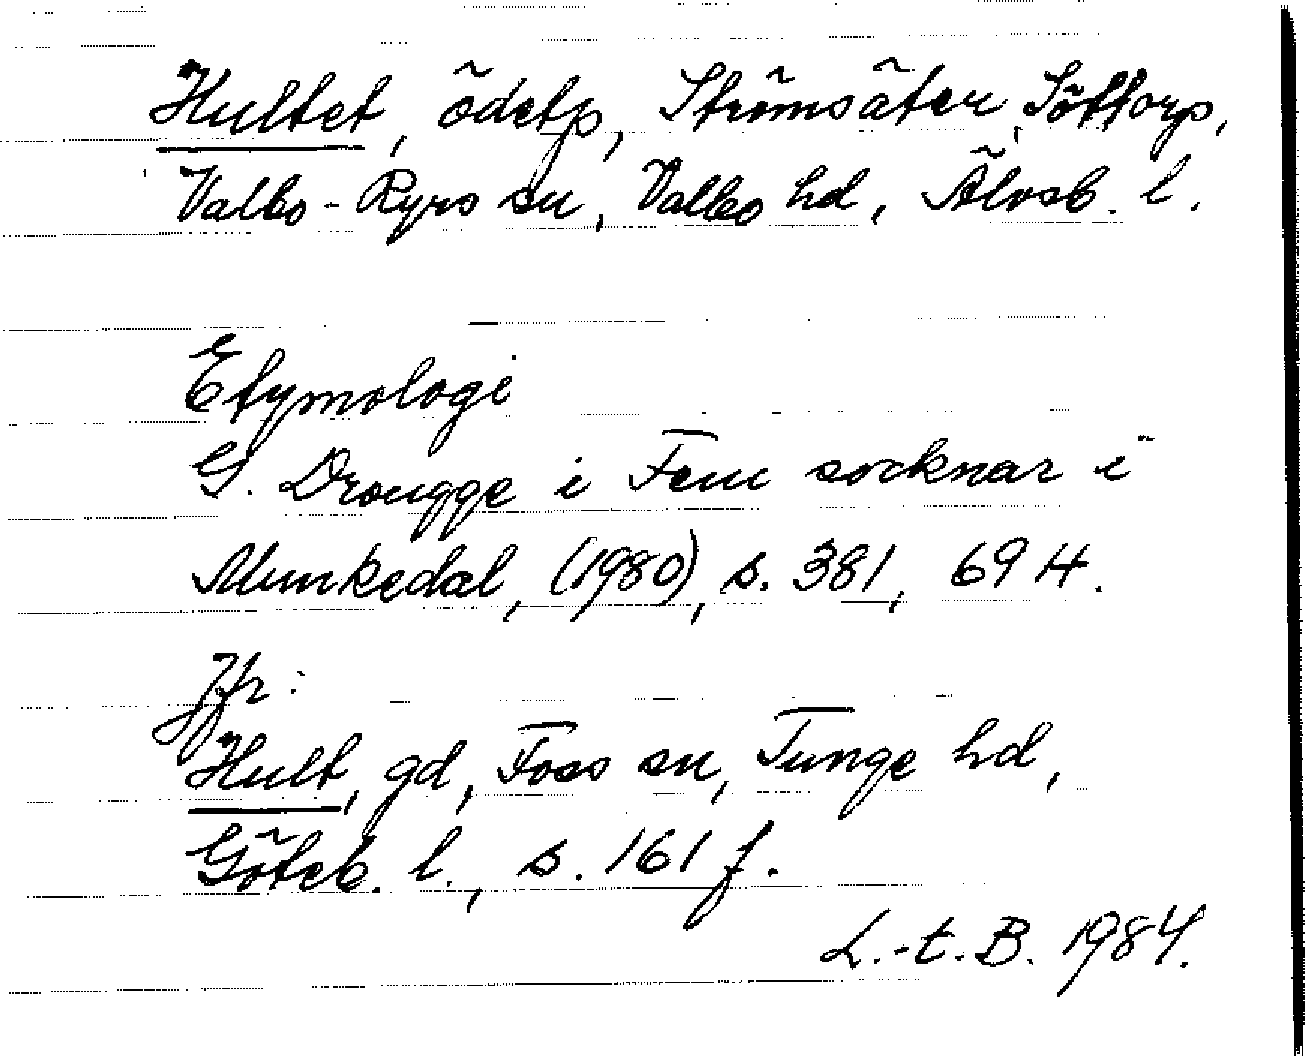 Hultet, ödetp, Strömsäter, Söttorp,
Valbo-Ryrs sn, Valbo hd, Älvsb. l.
Etymologi
G. Drougge i Fem socknar i
Munkedal, (1980), s. 381, 694.
Jfr:
Hult, gd, Foss sn, Tunge hd,
Göteb. l., s. 161 f.
L.-t. B. 1984.